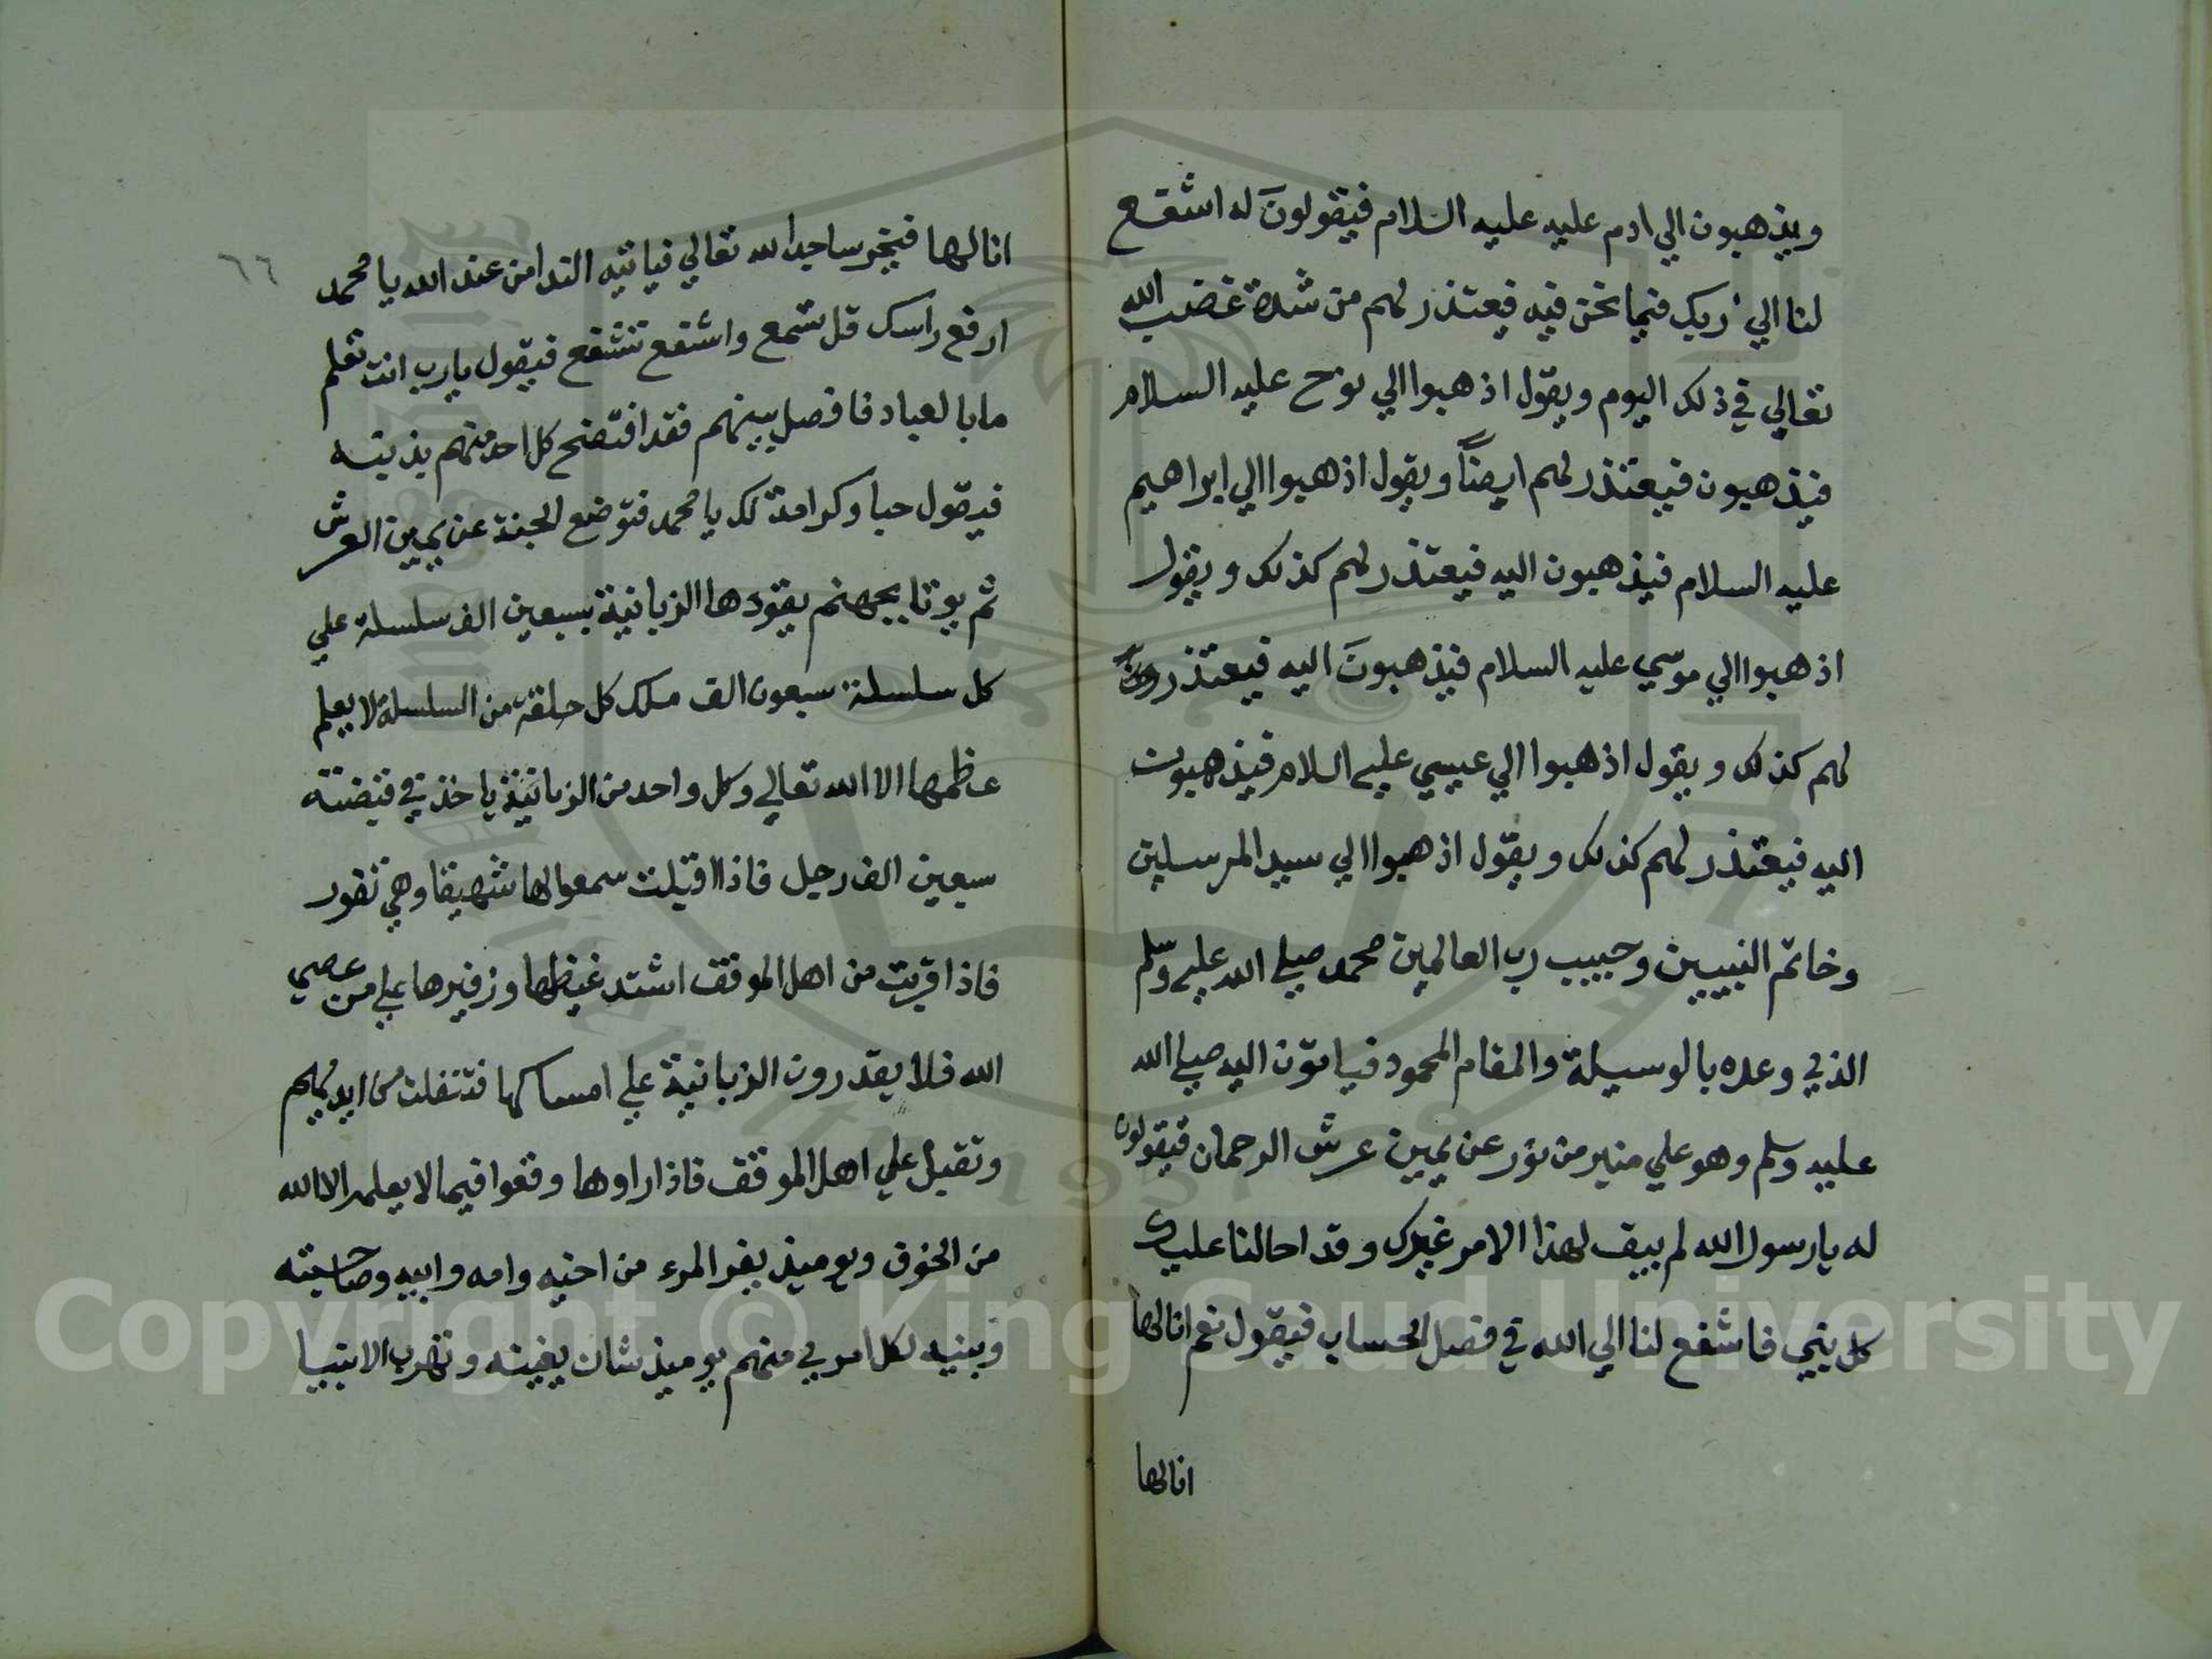 ويذهبون الي ادم عليه عليه السلام فيقولونَ له اشفع
لنا الي ربك فيما نحن فيه فيعتذر لهم من شدة غضب الله
تعالي في ذلك اليوم ويقول اذهبوا الي نوح عليه السلام
فيذهبون فيعتذر لهم ايضاً ويقول اذهبوا الي ابراهيم
عليه السلام فيذهبون اليه فيعتذر لهم كذلك ويقول
اذهبوا الي موسي عليه السلام فيذهبونَ اليه فيعتذر
لهم كذلك ويقول اذهبوا الي عيسي عليه السلام فيذهبون
اليه فيعتذر لهم كذلك ويقول اذهبوا الي سيد المرسلين
وخاتم النبيين وحبيب رب العالمين محمد صلي الله عليه وسلم
الذي وعده بالوسيلة والمقام المحمود فياتون اليه صلي الله
عليه وسلم وهو علي منبر من نور عن يمين عرش الرحمان فيقولون
له يا رسول الله لم يبق لهذا الامر غيرك وقد احالنا عليك
كل نبي فاشفع لنا الي الله في فصل الحساب فيقول نعم انا لها
انا لها
٦٦
انا لها فيخر ساجدا لله تعالي فياتيه الندا من عند الله يا محمد
ارفع راسك قل تسمع واشفع تشفع فيقول يا رب انت تعلم
ما بالعباد فافصل بينهم فقد افتضح كل احد منهم بذنبه
فيقول حبا وكرامة لك يا محمد فتوضع الجنة عن يمين العرش
ثم يوتا بجهنم يقودها الزبانية بسبعين الف سلسلة علي
كل سلسلة سبعون الف ملك كل حلقة من السلسلة لا يعلم
عظمها الا الله تعالي وكل واحد من الزبانية ياخذ في قبضته
سبعين الف رجل فاذا اقبلت سمعوا لها شهيقا وهي تفور
فاذا قربت من اهل الموقف اشتد غيظها وزفيرها علي من عصي
الله فلا يقدرون الزبانية علي امساكها فتنفلت من ايديهم
وتقبل علي اهل الموقف فاذا راوها وقعوا فيما لا يعلمه الا الله
من الخوف ويوميذ يفر المرء من اخيه وامه وابيه وصاحبته
وبنيه لكل امري منهم يوميذ شان يغنيه وتهرب الانبيا
Copyright © King Saud University